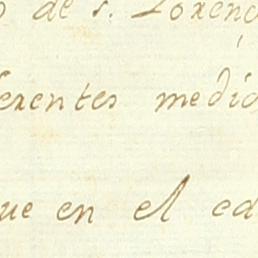 o de S. Lorenç
ferentes medio
que en el ed